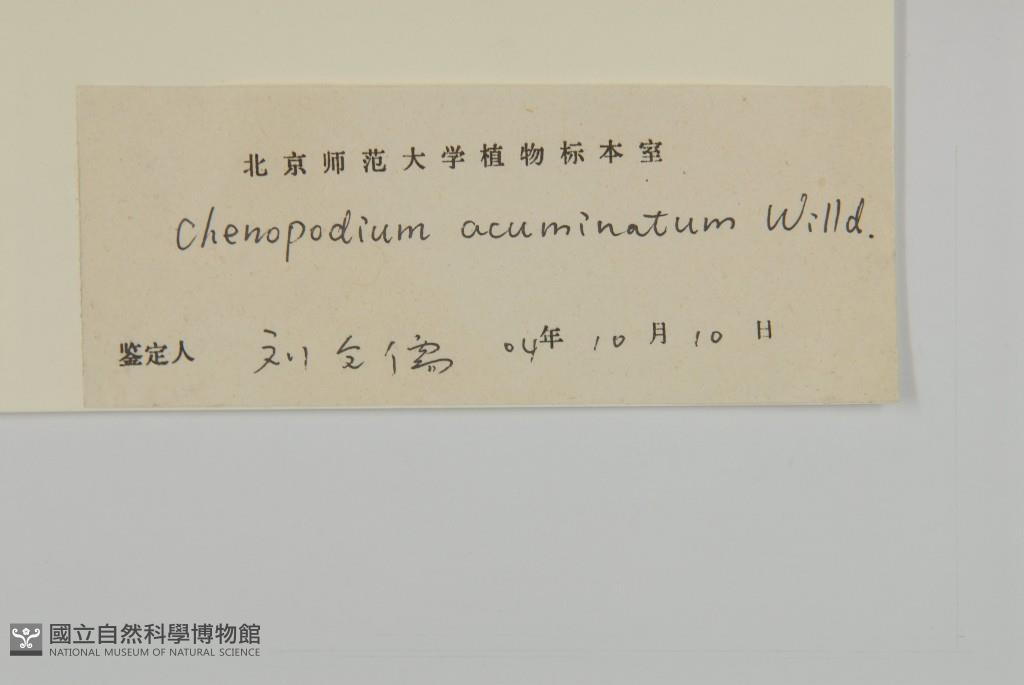 北京师范大学植物标本室
Chenopodium acuminatum Willd.
鉴定人 刘全儒 04年 10月 10日
國立自然科學博物館
NATIONAL MUSEUM OF NATURAL SCIENCE